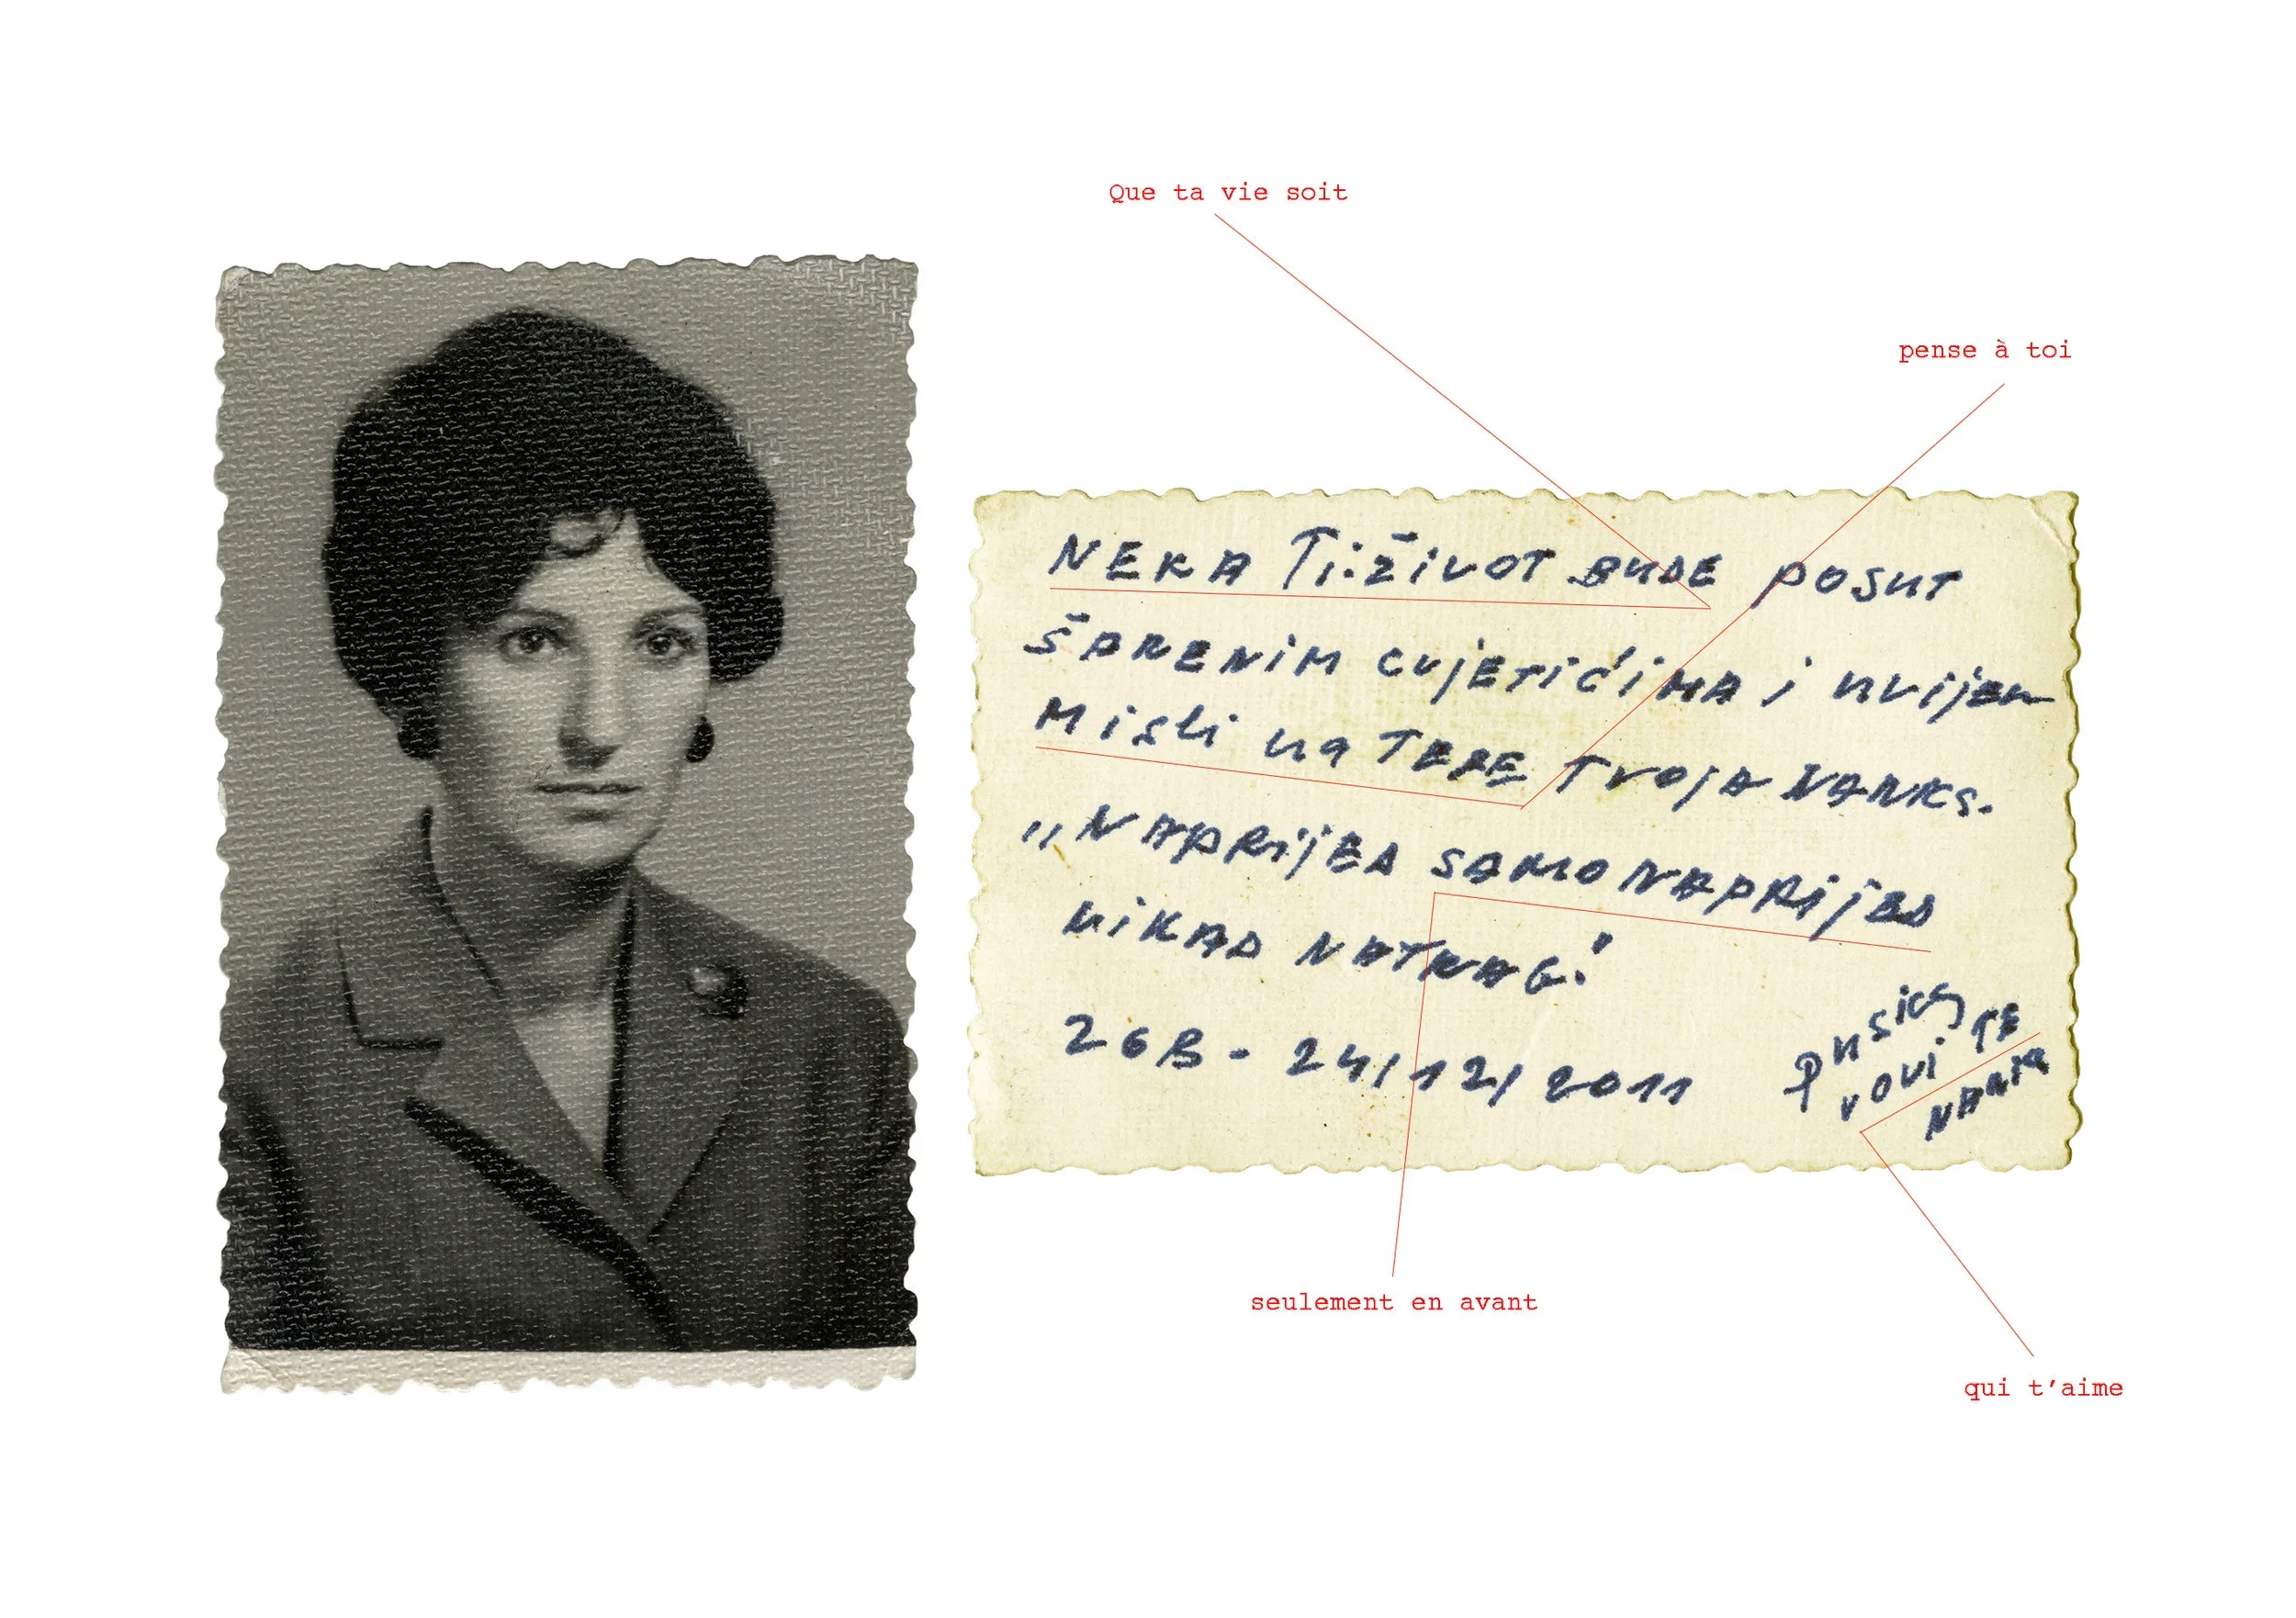 Que ta vie soit
pense à toi
NEKA Ti ŽiVOT BUDE POSUT
ŠARENIM CVJETIĆIMA i uvijek
Misli na TEBE TVOJA
„NAPRIJED SAMO NAPRIJED
NIKAD NATRAG!
ZGB - 24/12/2011
PUSICA
VOLI TE
seulement en avant
qui t’aime